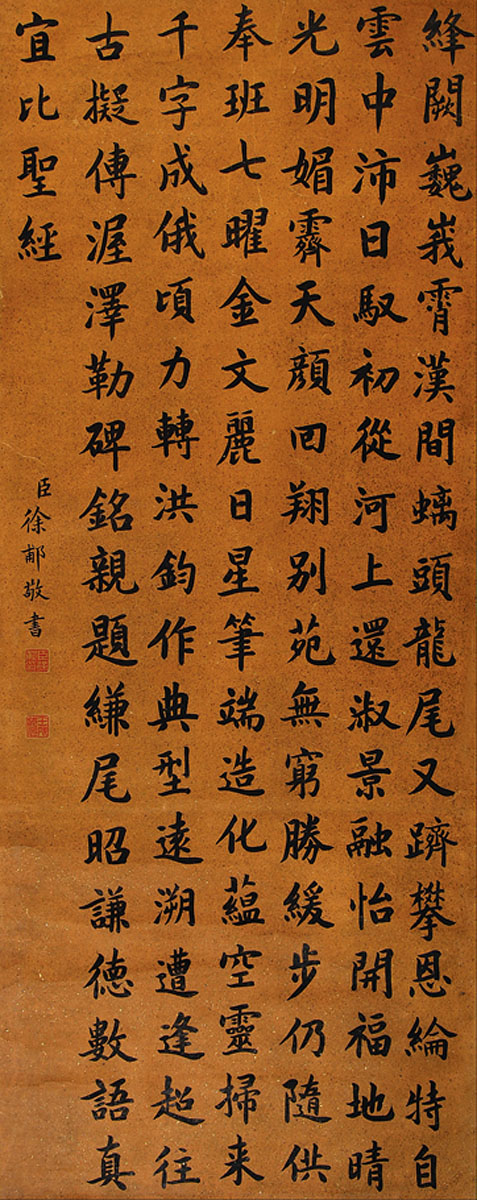 絳闕巍峩霄漢間螭頭龍尾又躋攀恩綸特自
雲中沛日馭初從河上還淑景融怡開福地晴
光明媚霽天顔回翔別苑無窮勝緩步仍隨供
奉班七曜金文麗日星筆端造化蘊空靈掃来
千字成俄頃力轉洪鈞作典型遠溯遭逢超往
古擬傳渥澤勒碑銘親題縑尾昭謙德數語真
宜比聖經
臣徐郙敬書